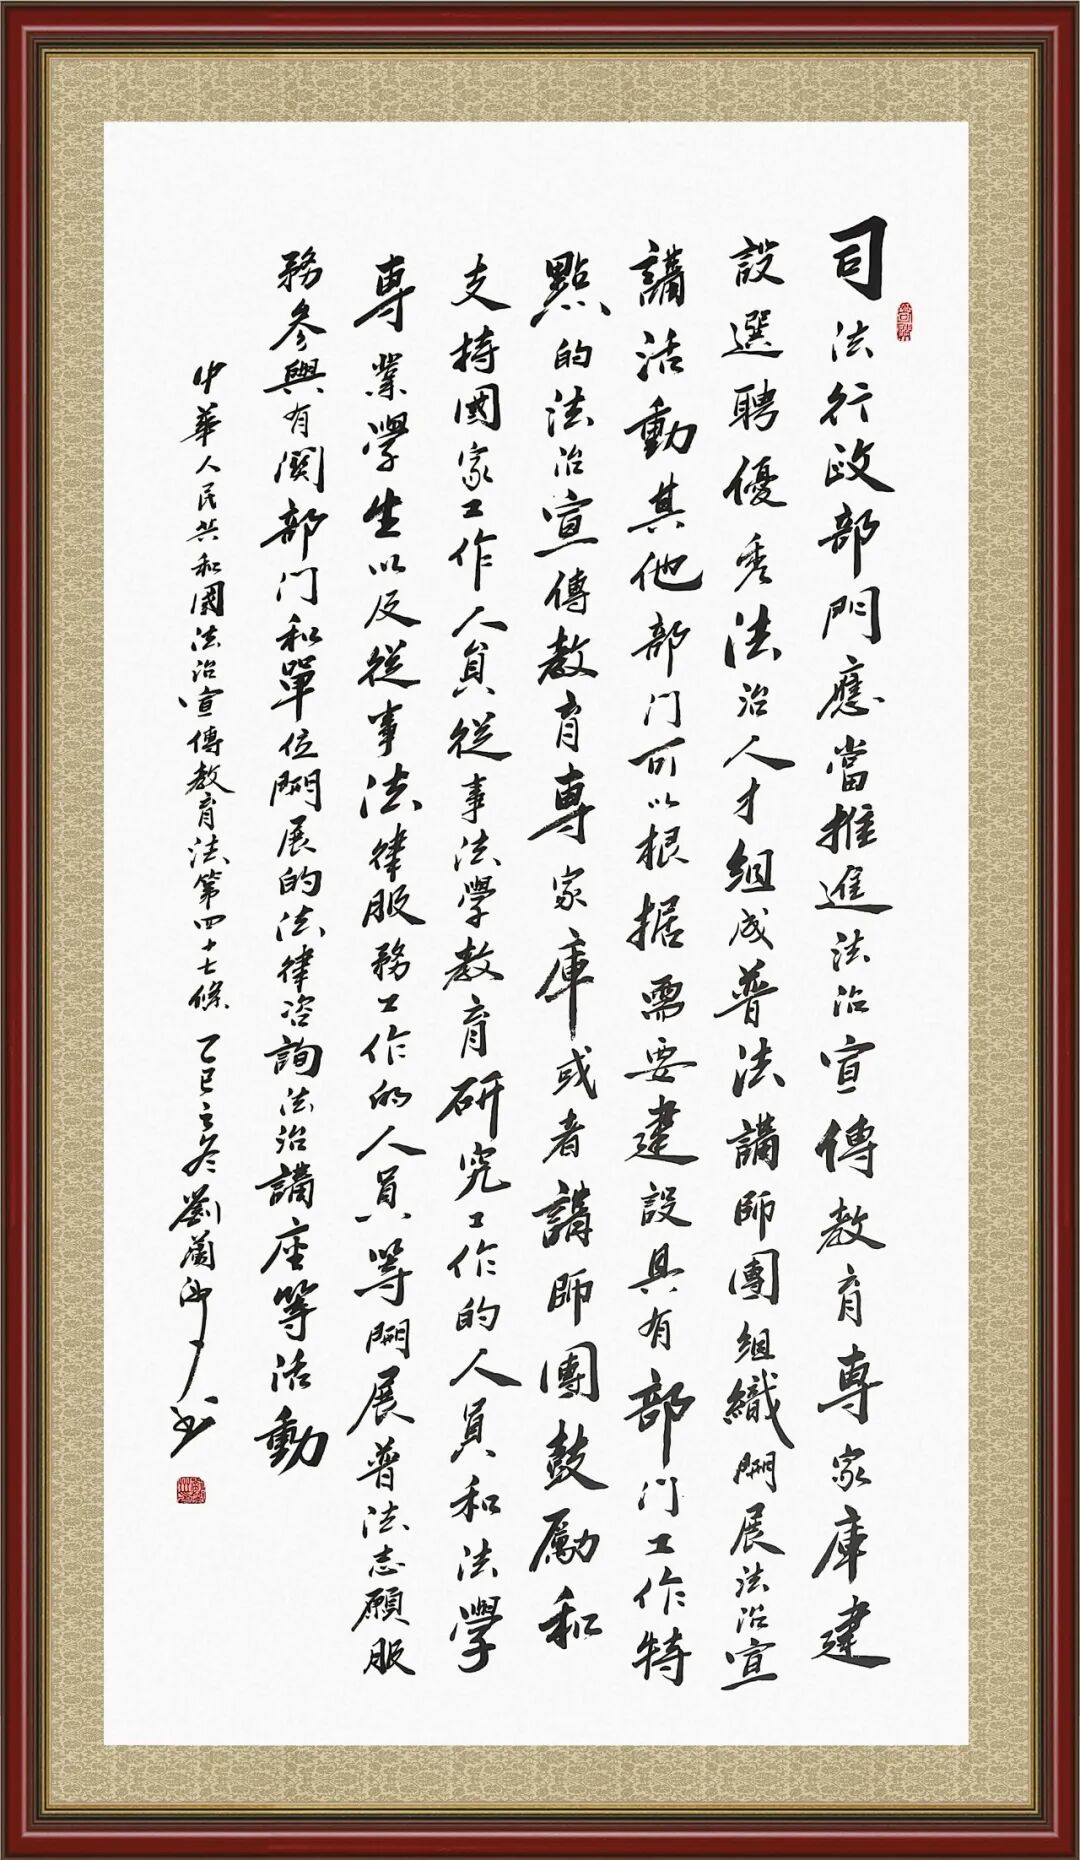 司法行政部門應當推進法治宣傳教育專家庫建
設選聘優秀法治人才組成普法講師團組織開展法治宣
講活動其他部门可以根据需要建設具有部门工作特
點的法治宣傳教育專家庫或者講師團鼓勵和
支持國家工作人員從事法學教育研究工作的人員和法學
專業學生以及從事法律服務工作的人員等開展普法志願服
務參與有関部门和單位開展的法律咨詢法治講座等活動
中華人民共和國法治宣傳教育法第四十七條 乙巳立冬 劉蘭